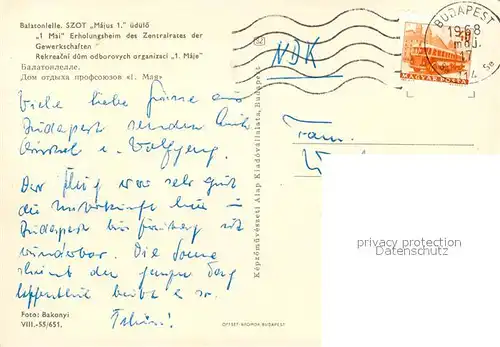 Balatonlelle. SZOT „Május 1.” üdülő
„1 Mai” Erholungsheim des Zentralrates der
Gewerkschaften
Rekreační dům odborovych organizací „1. Máje”
Балатонлелле.
Дом отдыха профсоюзов «1. Мая»
Viele liebe Grüsse aus
Budapest senden Euch
u. Wolfgang.
Der Flug war sehr gut
die Unterkünfte hier in
Budapest
wunderbar. Die Sonne
scheint den ganzen Tag
hoffentlich bleibt es so.
Tschüs!
Foto: Bakonyi
VIII.-55/651.
OFFSET-NYOMDA BUDAPEST
Képzőművészeti Alap Kiadóvállalata, Budapest
NDK
Fam.
BUDAPEST
1968
MAGYAR POSTA
privacy protection
Datenschutz